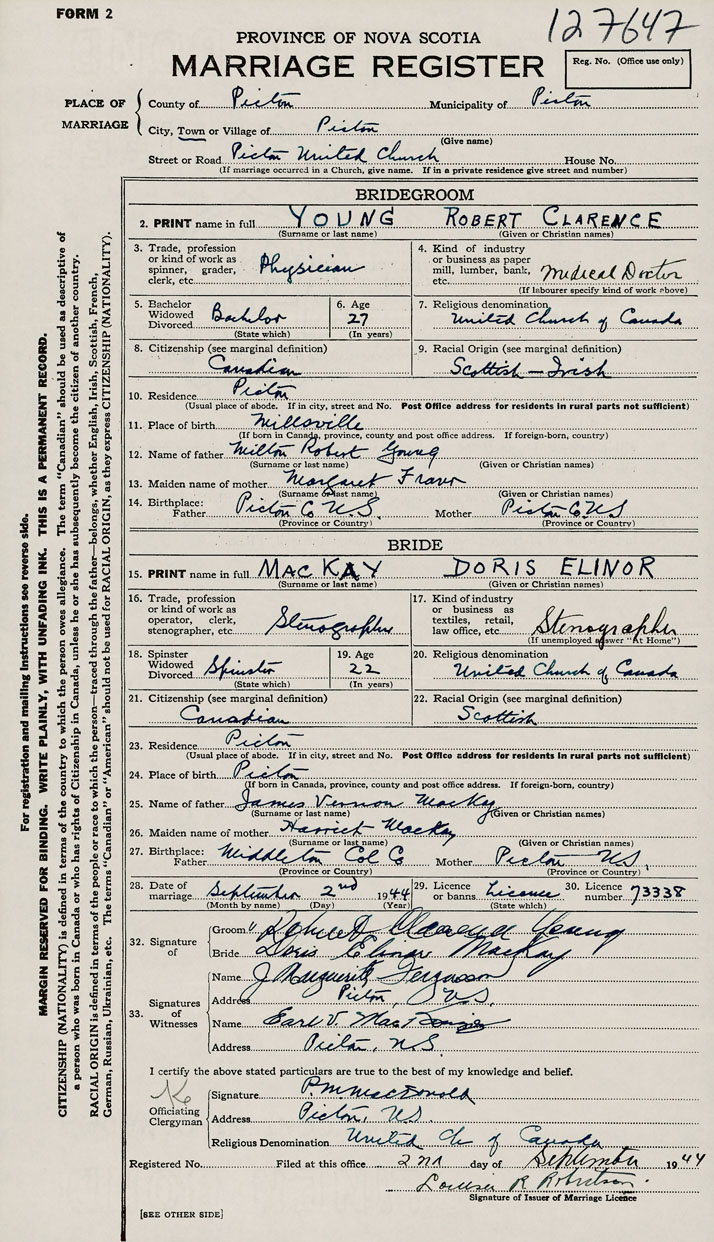 FORM 2
127647
PROVINCE OF NOVA SCOTIA
MARRIAGE REGISTER
Reg. No. (Office use only)
PLACE OF MARRIAGE
County of Pictou Municipality of Pictou
City, Town or Village of Pictou
(Give name)
Street or Road Pictou United Church House No.
(If marriage occurred in a Church, give name. If in a private residence give street and number)
BRIDEGROOM
2. PRINT name in full YOUNG ROBERT CLARENCE
(Surname or last name) (Given or Christian names)
3. Trade, profession or kind of work as spinner, grader, clerk, etc. Physician
4. Kind of industry or business as paper mill, lumber, bank, etc. Medical Doctor
(If labourer specify kind of work above)
5. Bachelor Widowed Divorced Bachelor
(State which)
6. Age 27
(In years)
7. Religious denomination
United Church of Canada
8. Citizenship (see marginal definition)
Canadian
9. Racial Origin (see marginal definition)
Scottish - Irish
10. Residence Pictou
(Usual place of abode. If in city, street and No. Post Office address for residents in rural parts not sufficient)
11. Place of birth Millsville
(If born in Canada, province, county and post office address. If foreign-born, country)
12. Name of father Milton Robert Young
(Surname or last name) (Given or Christian names)
13. Maiden name of mother Margaret
(Surname or last name) (Given or Christian names)
14. Birthplace: Father Pictou Co N.S. Mother Pictou Co N.S
(Province or Country) (Province or Country)
BRIDE
15. PRINT name in full MACKAY DORIS ELINOR
(Surname or last name) (Given or Christian names)
16. Trade, profession or kind of work as operator, clerk, stenographer, etc. Stenographer
17. Kind of industry or business as textiles, retail, law office, etc. Stenographer
(If unemployed answer "At Home")
18. Spinster Widowed Divorced Spinster
(State which)
19. Age 22
(In years)
20. Religious denomination
United Church of Canada
21. Citizenship (see marginal definition)
Canadian
22. Racial Origin (see marginal definition)
Scottish
23. Residence Pictou
(Usual place of abode. If in city, street and No. Post Office address for residents in rural parts not sufficient)
24. Place of birth Pictou
(If born in Canada, province, county and post office address. If foreign-born, country)
25. Name of father James Vernon MacKay
(Surname or last name) (Given or Christian names)
26. Maiden name of mother Harriet MacKay
(Surname or last name) (Given or Christian names)
27. Birthplace: Father Middleton Col Co Mother Pictou N.S.
(Province or Country) (Province or Country)
28. Date of marriage September 2nd 1944
(Month by name) (Day) (Year)
29. Licence or banns Licence
(State which)
30. Licence number 73338
32. Signature of
Groom Robert Clarence Young
Bride Doris Elinor MacKay
33. Signatures of Witnesses
Name J Marguerite Ferguson
Address Pictou, N.S.
Name Earl V.
Address Pictou, N.S.
I certify the above stated particulars are true to the best of my knowledge and belief.
Officiating Clergyman
Signature P.M. MacDonald
Address Pictou, N.S.
Religious Denomination United Ch of Canada
Registered No. Filed at this office 2nd day of September 1944
Robertson
Signature of Issuer of Marriage Licence
[SEE OTHER SIDE]
For registration and mailing instructions see reverse side.
MARGIN RESERVED FOR BINDING. WRITE PLAINLY, WITH UNFADING INK. THIS IS A PERMANENT RECORD.
CITIZENSHIP (NATIONALITY) is defined in terms of the country to which the person owes allegiance. The term "Canadian" should be used as descriptive of
a person who was born in Canada or who has rights of Citizenship in Canada, unless he or she has subsequently become the citizen of another country.
RACIAL ORIGIN is defined in terms of the people or race to which the person—traced through the father—belongs, whether English, Irish, Scottish, French,
German, Russian, Ukrainian, etc. The terms "Canadian" or "American" should not be used for RACIAL ORIGIN, as they express CITIZENSHIP (NATIONALITY).